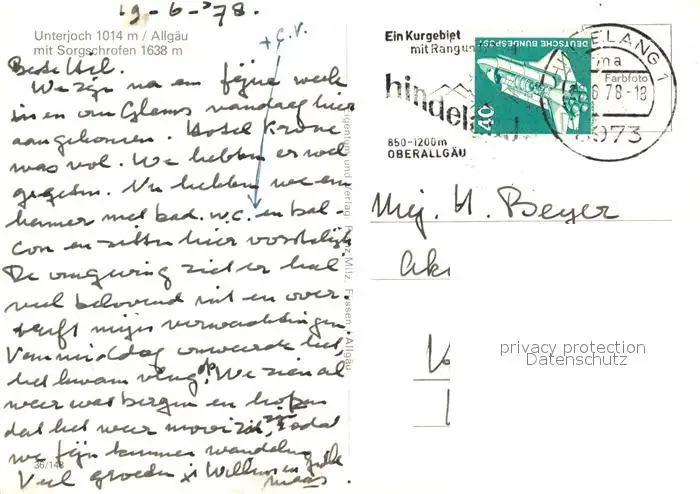 19-6-'78.
Unterjoch 1014 m / Allgäu
mit Sorgschrofen 1638 m
+ C.V.
Beste Hel.
We zijn na een fijne week
in en om Glems vandaag hier
aangekomen. Hotel Krone
was vol. We hebben er wel
gegeten. Nu hebben we een
kamer met bad. w.c. en bal-
con en zitten hier vorstelijk
De omgeving ziet er heel
veel belovend uit en over-
treft mijn verwachtingen
Vanmiddag onweerde het,
het kwam vlug op. We zien al
weer wat bergen en hopen
dat het weer mooi zal zijn zodat
we fijn kunnen wandelen
Veel groeten Willem en
Maas
36/143
Eigentum und Verlag Franz Milz, Füssen · Allgäu
Ein Kurgebiet
mit Rang und
hindel
850-1200m
OBERALLGÄU
DEUTSCHE BUNDESPOST
40
ELANG 1
Farbfoto
6 78-18
8973
Mej. H. Beyer
privacy protection
Datenschutz